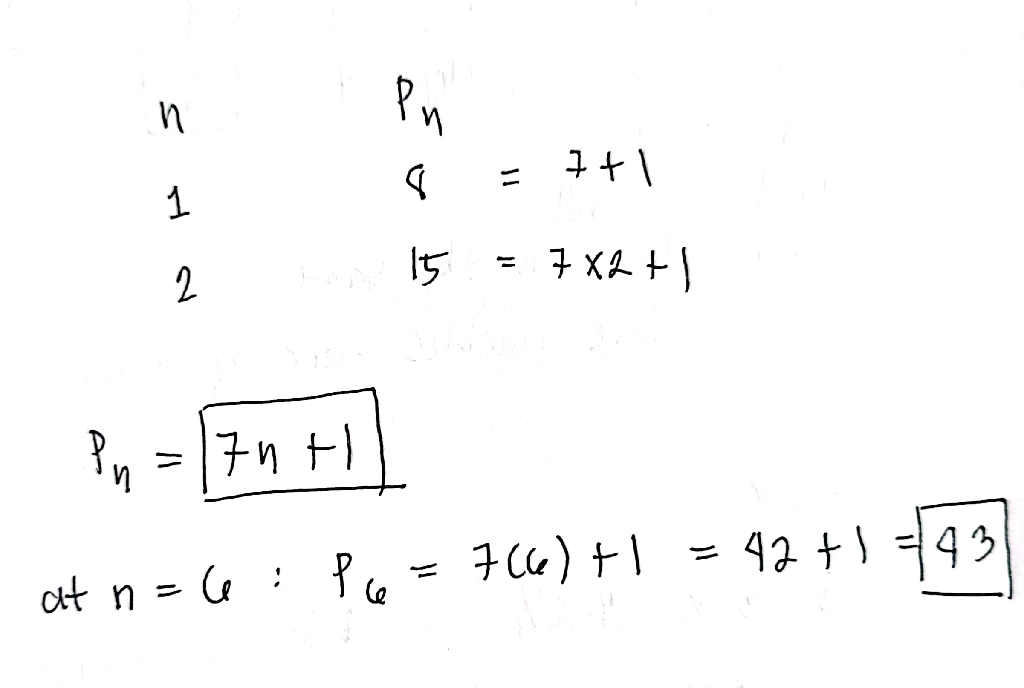 n Pn
1 8 = 7+1
2 15 = 7x2+1
Pn = 7n+1
at n = 6 : P6 = 7(6)+1 = 42+1 = 43